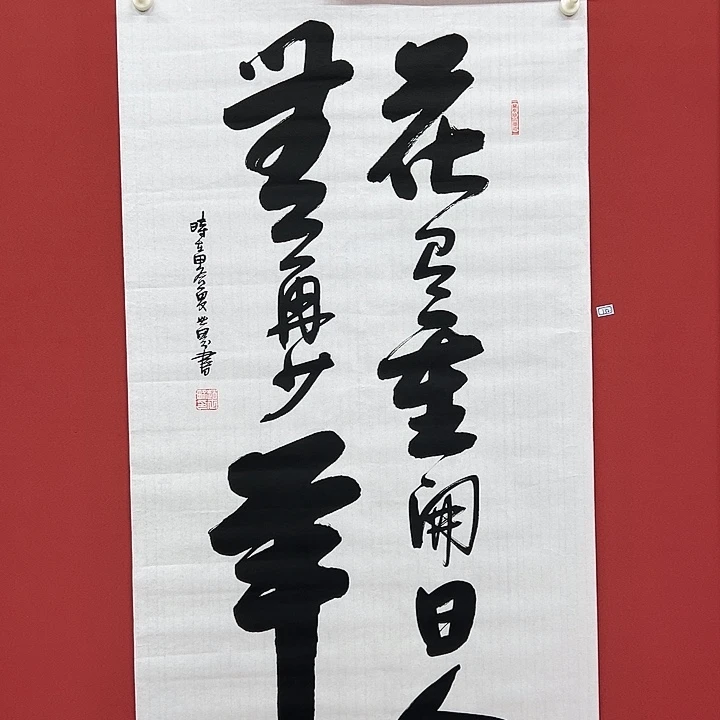 花有重開日人
無再少年
時在甲辰夏
書